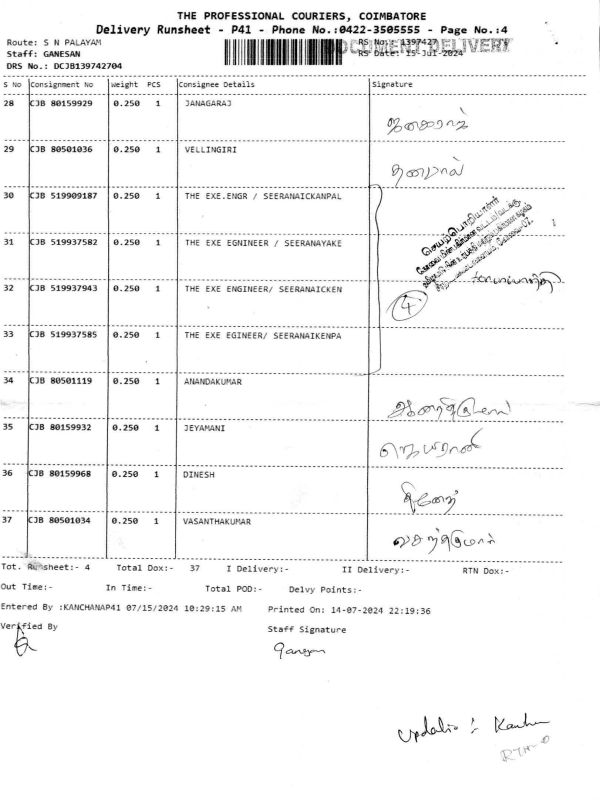 THE PROFESSIONAL COURIERS, COIMBATORE
Delivery Runsheet - P41 - Phone No.:0422-3505555 - Page No.:4
Route: S N PALAYAM
DOCUMENT DELIVERY
RS No.: 1397427
Staff: GANESAN
RS Date: 15-Jul-2024
DRS No.: DCJB139742704
S No Consignment No Weight PCS Consignee Details Signature
28 CJB 80159929 0.250 1 JANAGARAJ
29 CJB 80501036 0.250 1 VELLINGIRI
தனபால்
30 CJB 519909187 0.250 1 THE EXE.ENGR / SEERANAICKANPAL
செயற்பொறியாளர்
31 CJB 519937582 0.250 1 THE EXE EGNINEER / SEERANAYAKE
32 CJB 519937943 0.250 1 THE EXE ENGINEER/ SEERANAICKEN
4
33 CJB 519937585 0.250 1 THE EXE EGINEER/ SEERANAIKENPA
34 CJB 80501119 0.250 1 ANANDAKUMAR
35 CJB 80159932 0.250 1 JEYAMANI
36 CJB 80159968 0.250 1 DINESH
தினேஷ்
37 CJB 80501034 0.250 1 VASANTHAKUMAR
வசந்தகுமார்
Tot. Runsheet:- 4 Total Dox:- 37 I Delivery:- II Delivery:- RTN Dox:-
Out Time:- In Time:- Total POD:- Delvy Points:-
Entered By :KANCHANAP41 07/15/2024 10:29:15 AM Printed On: 14-07-2024 22:19:36
Verified By Staff Signature
Ganesan